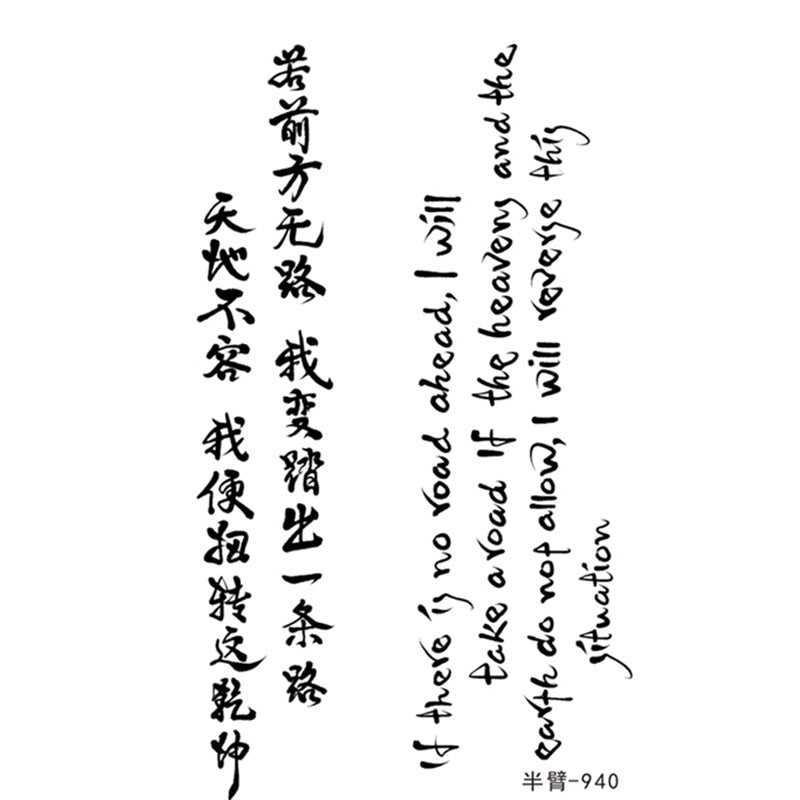 若前方无路 我变踏出一条路
天地不容 我便扭转这乾坤
If there is no road ahead, I will
take a road If the heavens and the
earth do not allow, I will reverse this
situation
半臂-940